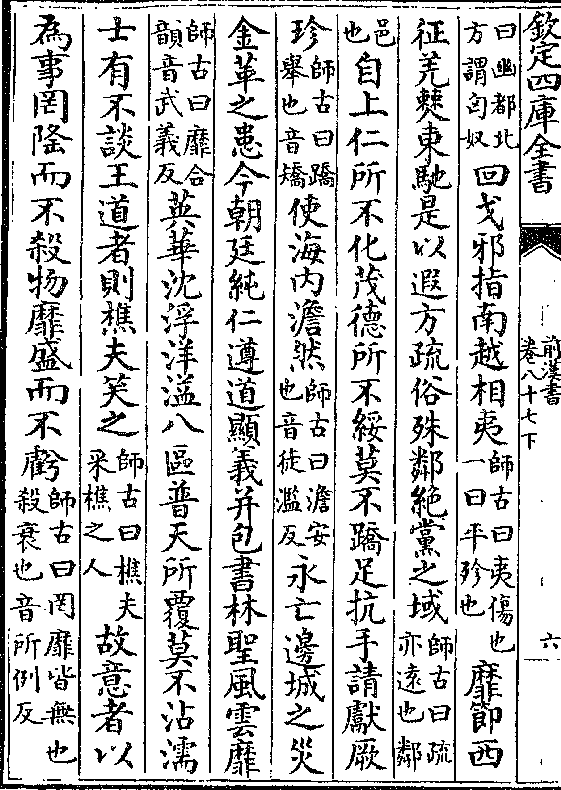 欽定四庫全書
前漢書
卷八十七下
六
曰幽都北
方謂匈奴
回戈邪指南越相夷
師古曰夷傷也
一曰平殄也
靡節西
征羌僰東馳是以遐方疏俗殊鄰絶黨之域
師古曰疏
亦遠也鄰
邑
也
自上仁所不化茂德所不綏莫不蹻足抗手請獻厥
珍
師古曰蹻
舉也音矯
使海内澹然
師古曰澹安
也音徒濫反
永亡邊城之災
金革之患今朝廷純仁遵道顯義并包書林聖風雲靡
師古曰靡合
韻音武義反
英華沈浮洋溢八區普天所覆莫不沾濡
士有不談王道者則樵夫笑之
師古曰樵夫
采樵之人
故意者以
為事罔隆而不殺物靡盛而不虧
師古曰罔靡皆無也
殺衰也音所例反